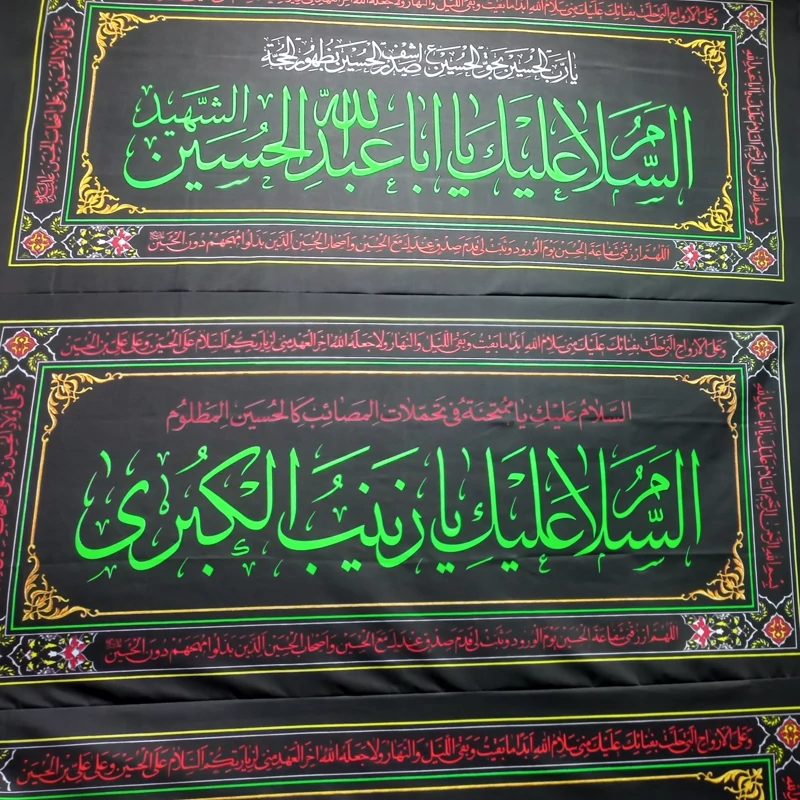 وعلى الارواح التي حلت بفنائك عليك مني سلام الله ابدا ما بقيت وبقي الليل والنهار ولا جعله الله اخر العهد مني
يا رب الحسين بحق الحسين اشف صدر الحسين بظهور الحجة
السَّلامُ عَلَيكَ يا ابا عَبدِ اللهِ الحُسَين الشَّهید
بسم الله الرحمن الرحيم السلام عليك يا ابا عبدالله
اللهم ارزقني شفاعة الحسين يوم الورود وثبت لي قدم صدق عندك مع الحسين واصحاب الحسين الذين بذلوا مهجهم دون الحسين
وعلى الارواح التي حلت بفنائك عليك مني سلام الله ابدا ما بقيت وبقي الليل والنهار ولا جعله الله اخر العهد مني لزيارتكم السلام على الحسين وعلى علي بن الحسين
السلام عليك يا ممتحنة في تحملات المصائب كالحسين المظلوم
السَّلامُ عَلَيكِ يا زَينَبُ الكُبرى
بسم الله الرحمن الرحيم السلام عليك يا ابا عبدالله
اللهم ارزقني شفاعة الحسين يوم الورود وثبت لي قدم صدق عندك مع الحسين واصحاب الحسين الذين بذلوا مهجهم دون الحسين
وعلى الارواح التي حلت بفنائك عليك مني سلام الله ابدا ما بقيت وبقي الليل والنهار ولا جعله الله اخر العهد مني لزيارتكم السلام على الحسين وعلى علي بن الحسين